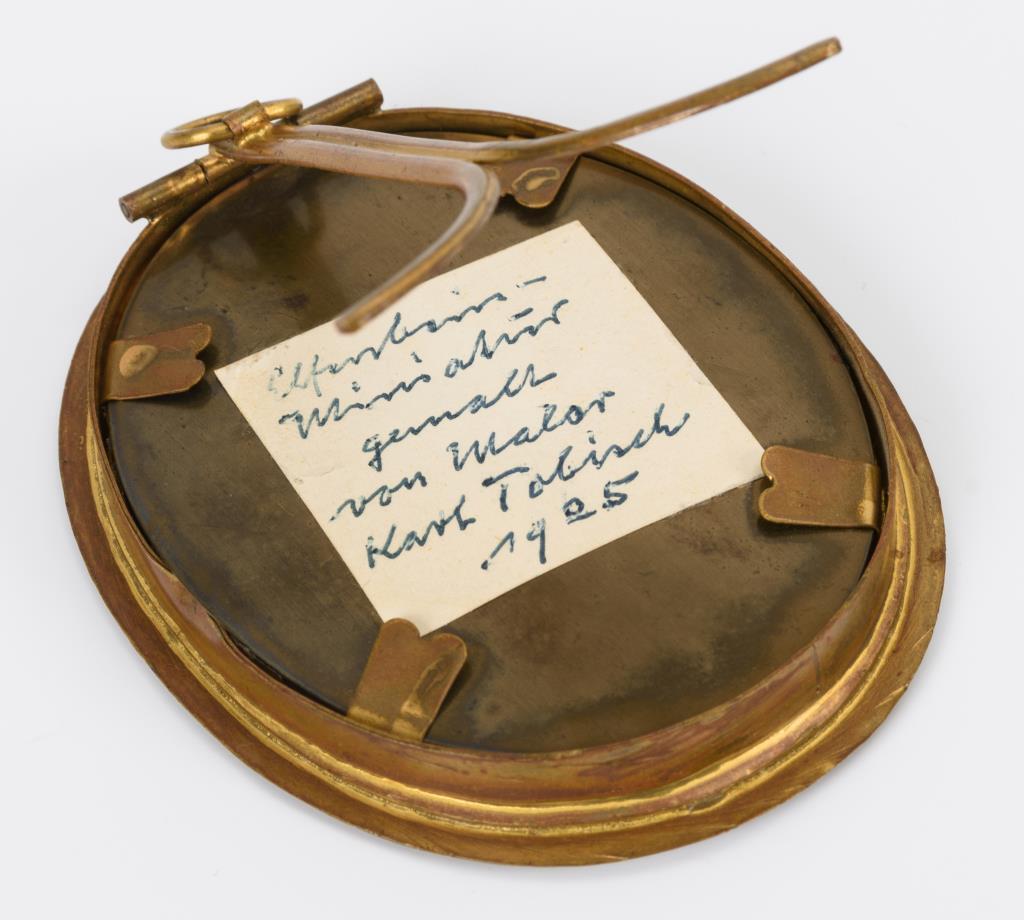 Elfenbein-
Miniatur
gemalt
von Maler
Karl Tobisch
1925